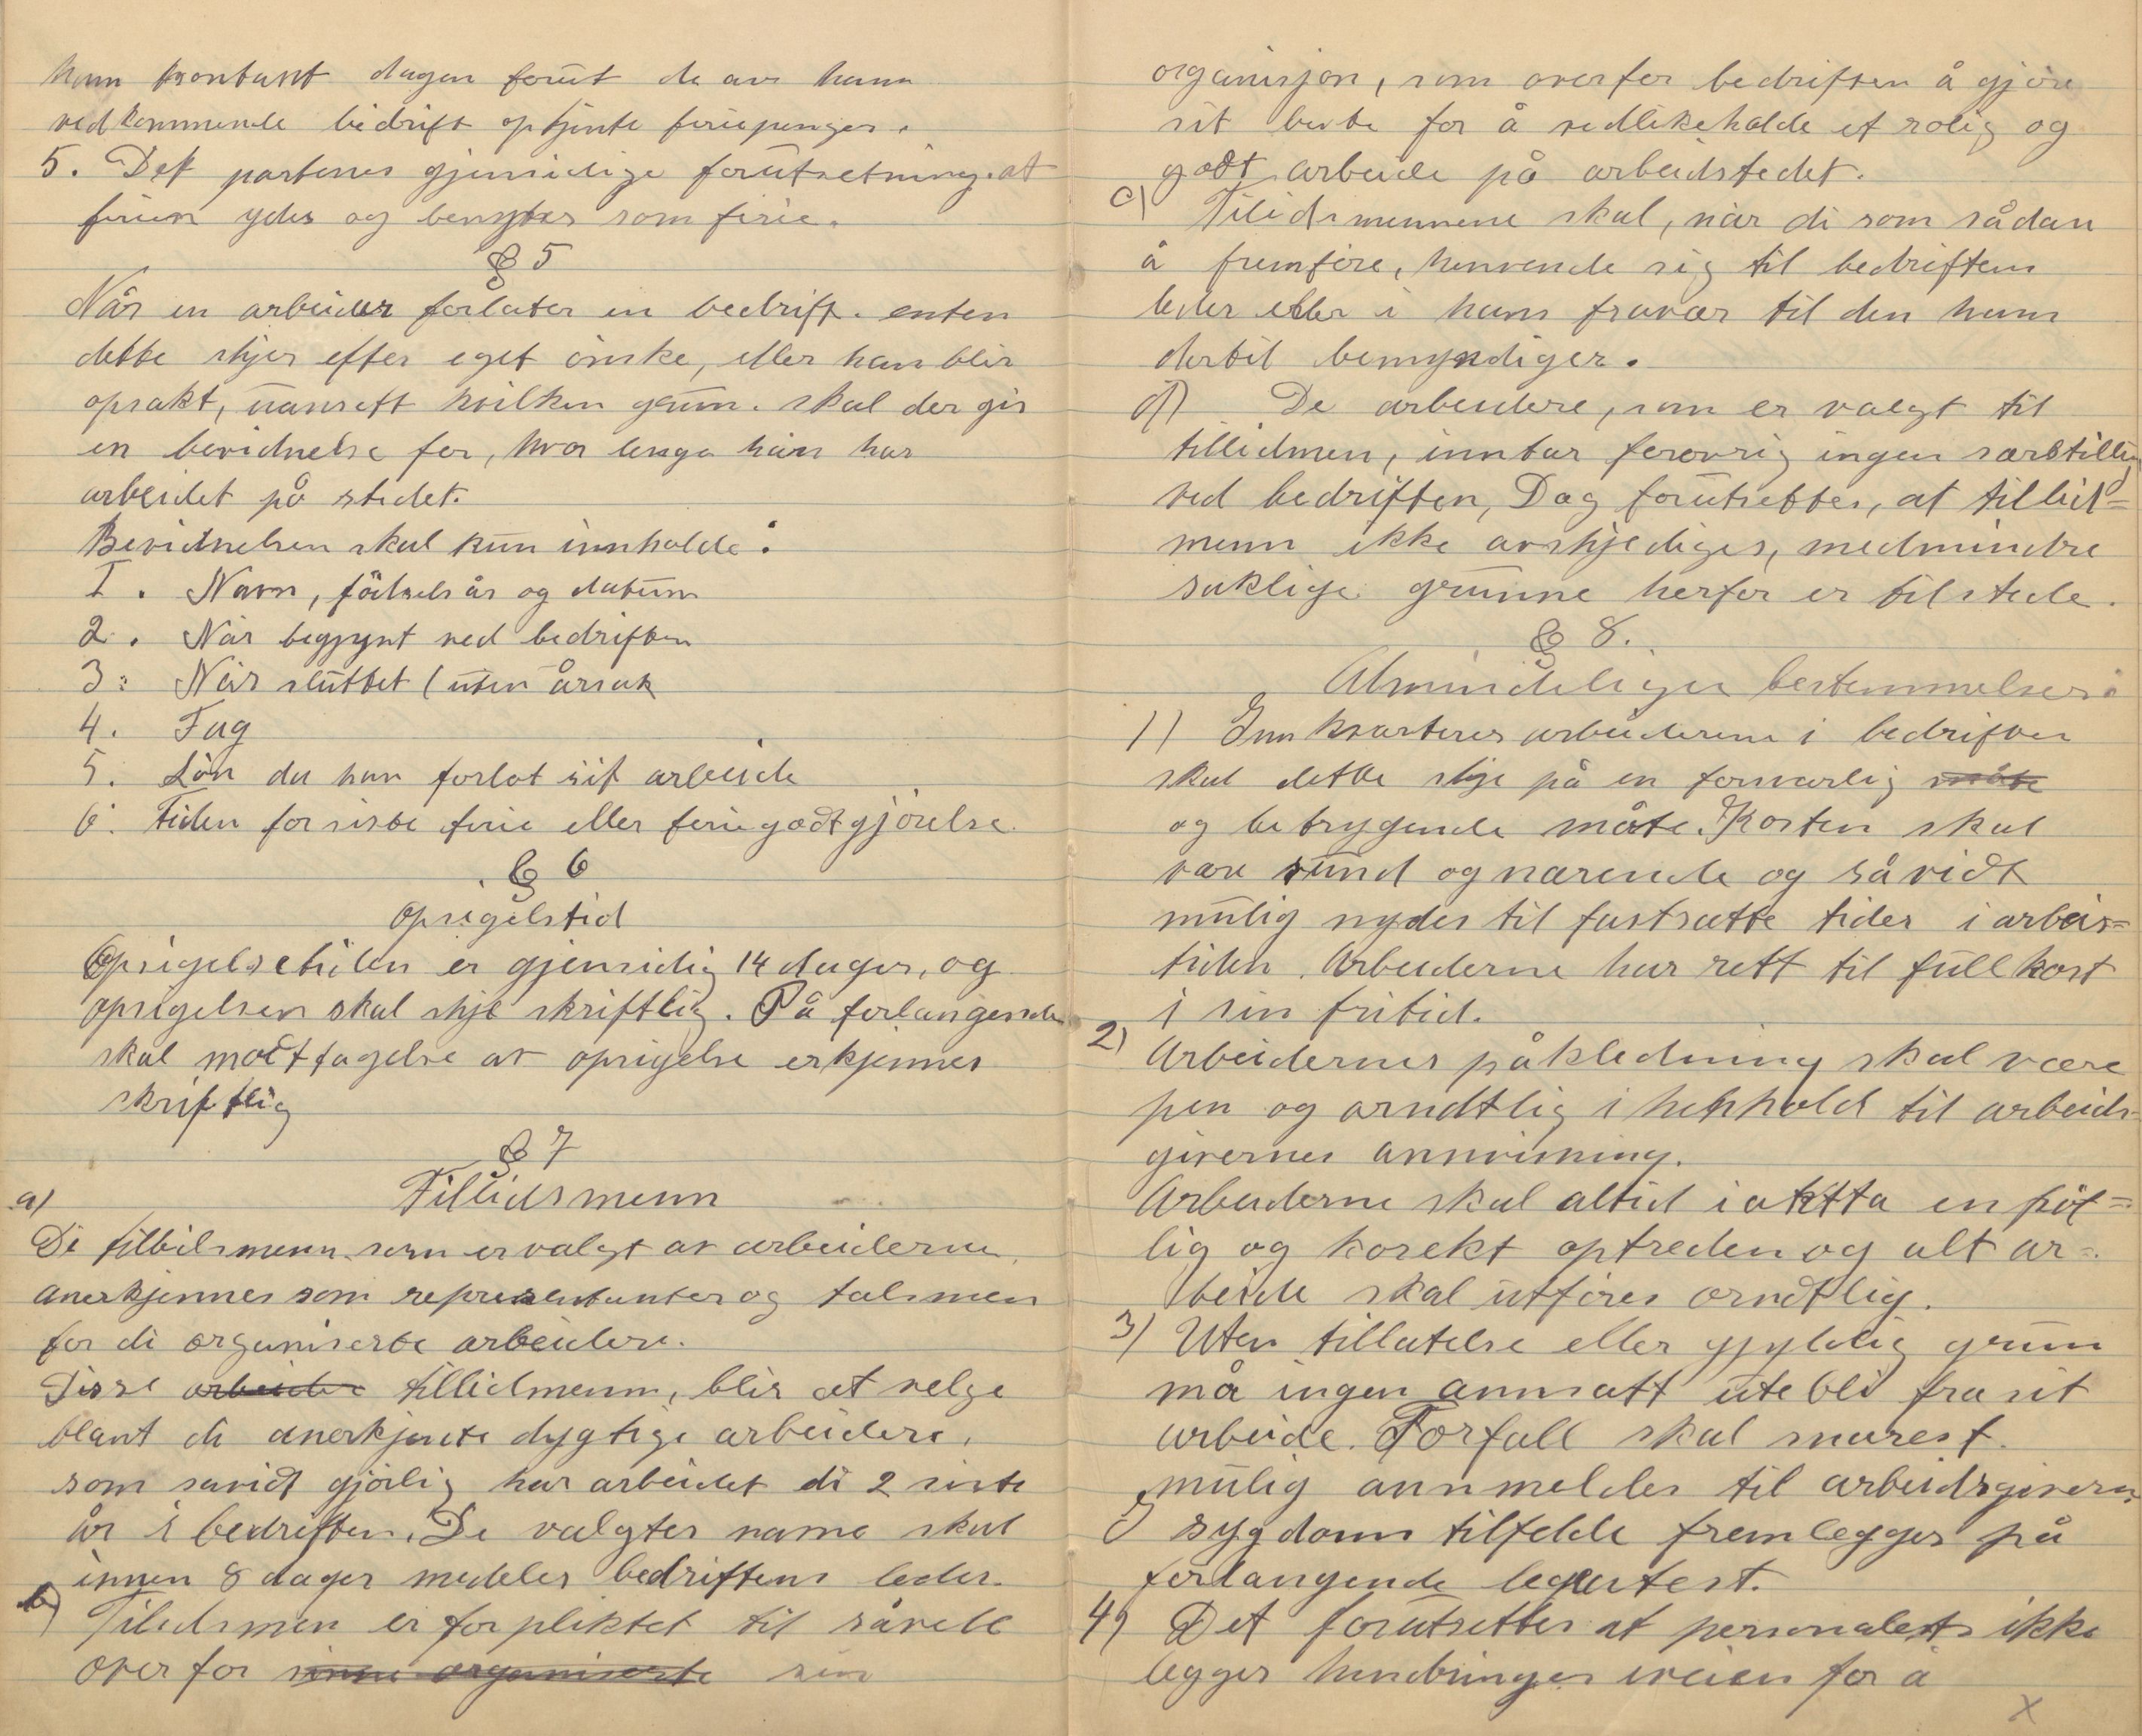 ham kontant dagen forut de av ham
vedkommende bidrift optjente feriepenger.
5. Det partenes gjensidige forutsetning at
ferien ydes og benyttes som ferie.
§ 5
Når en arbeider forlater en bedrift. enten
dette skjer efter eget önske, eller han blir
opsakt, uansett hvilken grunn. skal der gis
en bevidnelse for, hvor lenge han har
arbeidet på stedet.
Bevidnelsen skal kun innholde:
I. Navn, födselsår og datum
2. Når begynt ved bedriften
3. Når sluttet (uten årsak
4. Fag
5. Lön da han forlot sit arbeide
6. Tiden for siste ferie eller feriegodtgjörelse.
§ 6
Opsigelstid
Opsigelsetiden er gjensidig 14 dager, og
opsigelsen skal skje skriftlig. På forlangende
skal mottagelse av opsigelse erkjennes
skriftlig
§ 7
Tillidsmenn
a)
De tillidsmenn som er valgt av arbeiderne
anerkjennes som representanter og talsmen
for di organiserte arbeidere.
Disse arbeidere tillidmenn, blir at velge
blant di anerkjente dygtige arbeidere,
som savidt gjörlig har arbeidet di 2 siste
år i bedriften. De valgtes navne skal
innen 8 dager medeles bedriftens leder.
b) Tilidsmen er forpliktet til såvell
overfor sinne organiserte sin
organisjon, som overfor bedriften å gjöre
sit beste for å vedlikeholde et rolig og
godt arbeide på arbeidstedet.
c) Tilidsmennene skal, når di som sådan
å fremföre, henvende sig til bedriftens
leder eller i hans fravær til den hans
dertil bemyndiger.
d) De arbeidere, som er valgt til
tillidmen, inntar forøvrig ingen særstilling
ved bedriften, Dog forutsettes, at tillid=
menn ikke avskjediges, medmindre
saklige grunne herfor er tilstede.
§ 8.
Almindeliger bestemmelser
1) Innkvarteres arbeiderene i bedriften
skal dette skje på en forsvarlig måte
og betrygende måte. Kosten skal
være sund og nærende og såvidt
mulig nydes til fastsatte tider i arbeis=
tiden. Arbeiderne har rett til full kost
i sin fritid.
2) Arbeidernes påkledning skal være
pen og orndtlig i hehhold til arbeids-
givernes annvisning.
Arbeiderne skal altid iaktta en höf=
lig og korekt optreden og alt ar=
beide skal utföres orndtlig.
3) Uten tillatelse eller gyldig grunn
må ingen annsatt utebli fra sit
arbeide. Forfall skal snarest
mulig annmeldes til arbeidsgiveren
I sygdoms tilfelde fremlegges på
forlangende legeatest.
4) Det forutsettes at personalets ikke
legges hindringer iveien for å
x